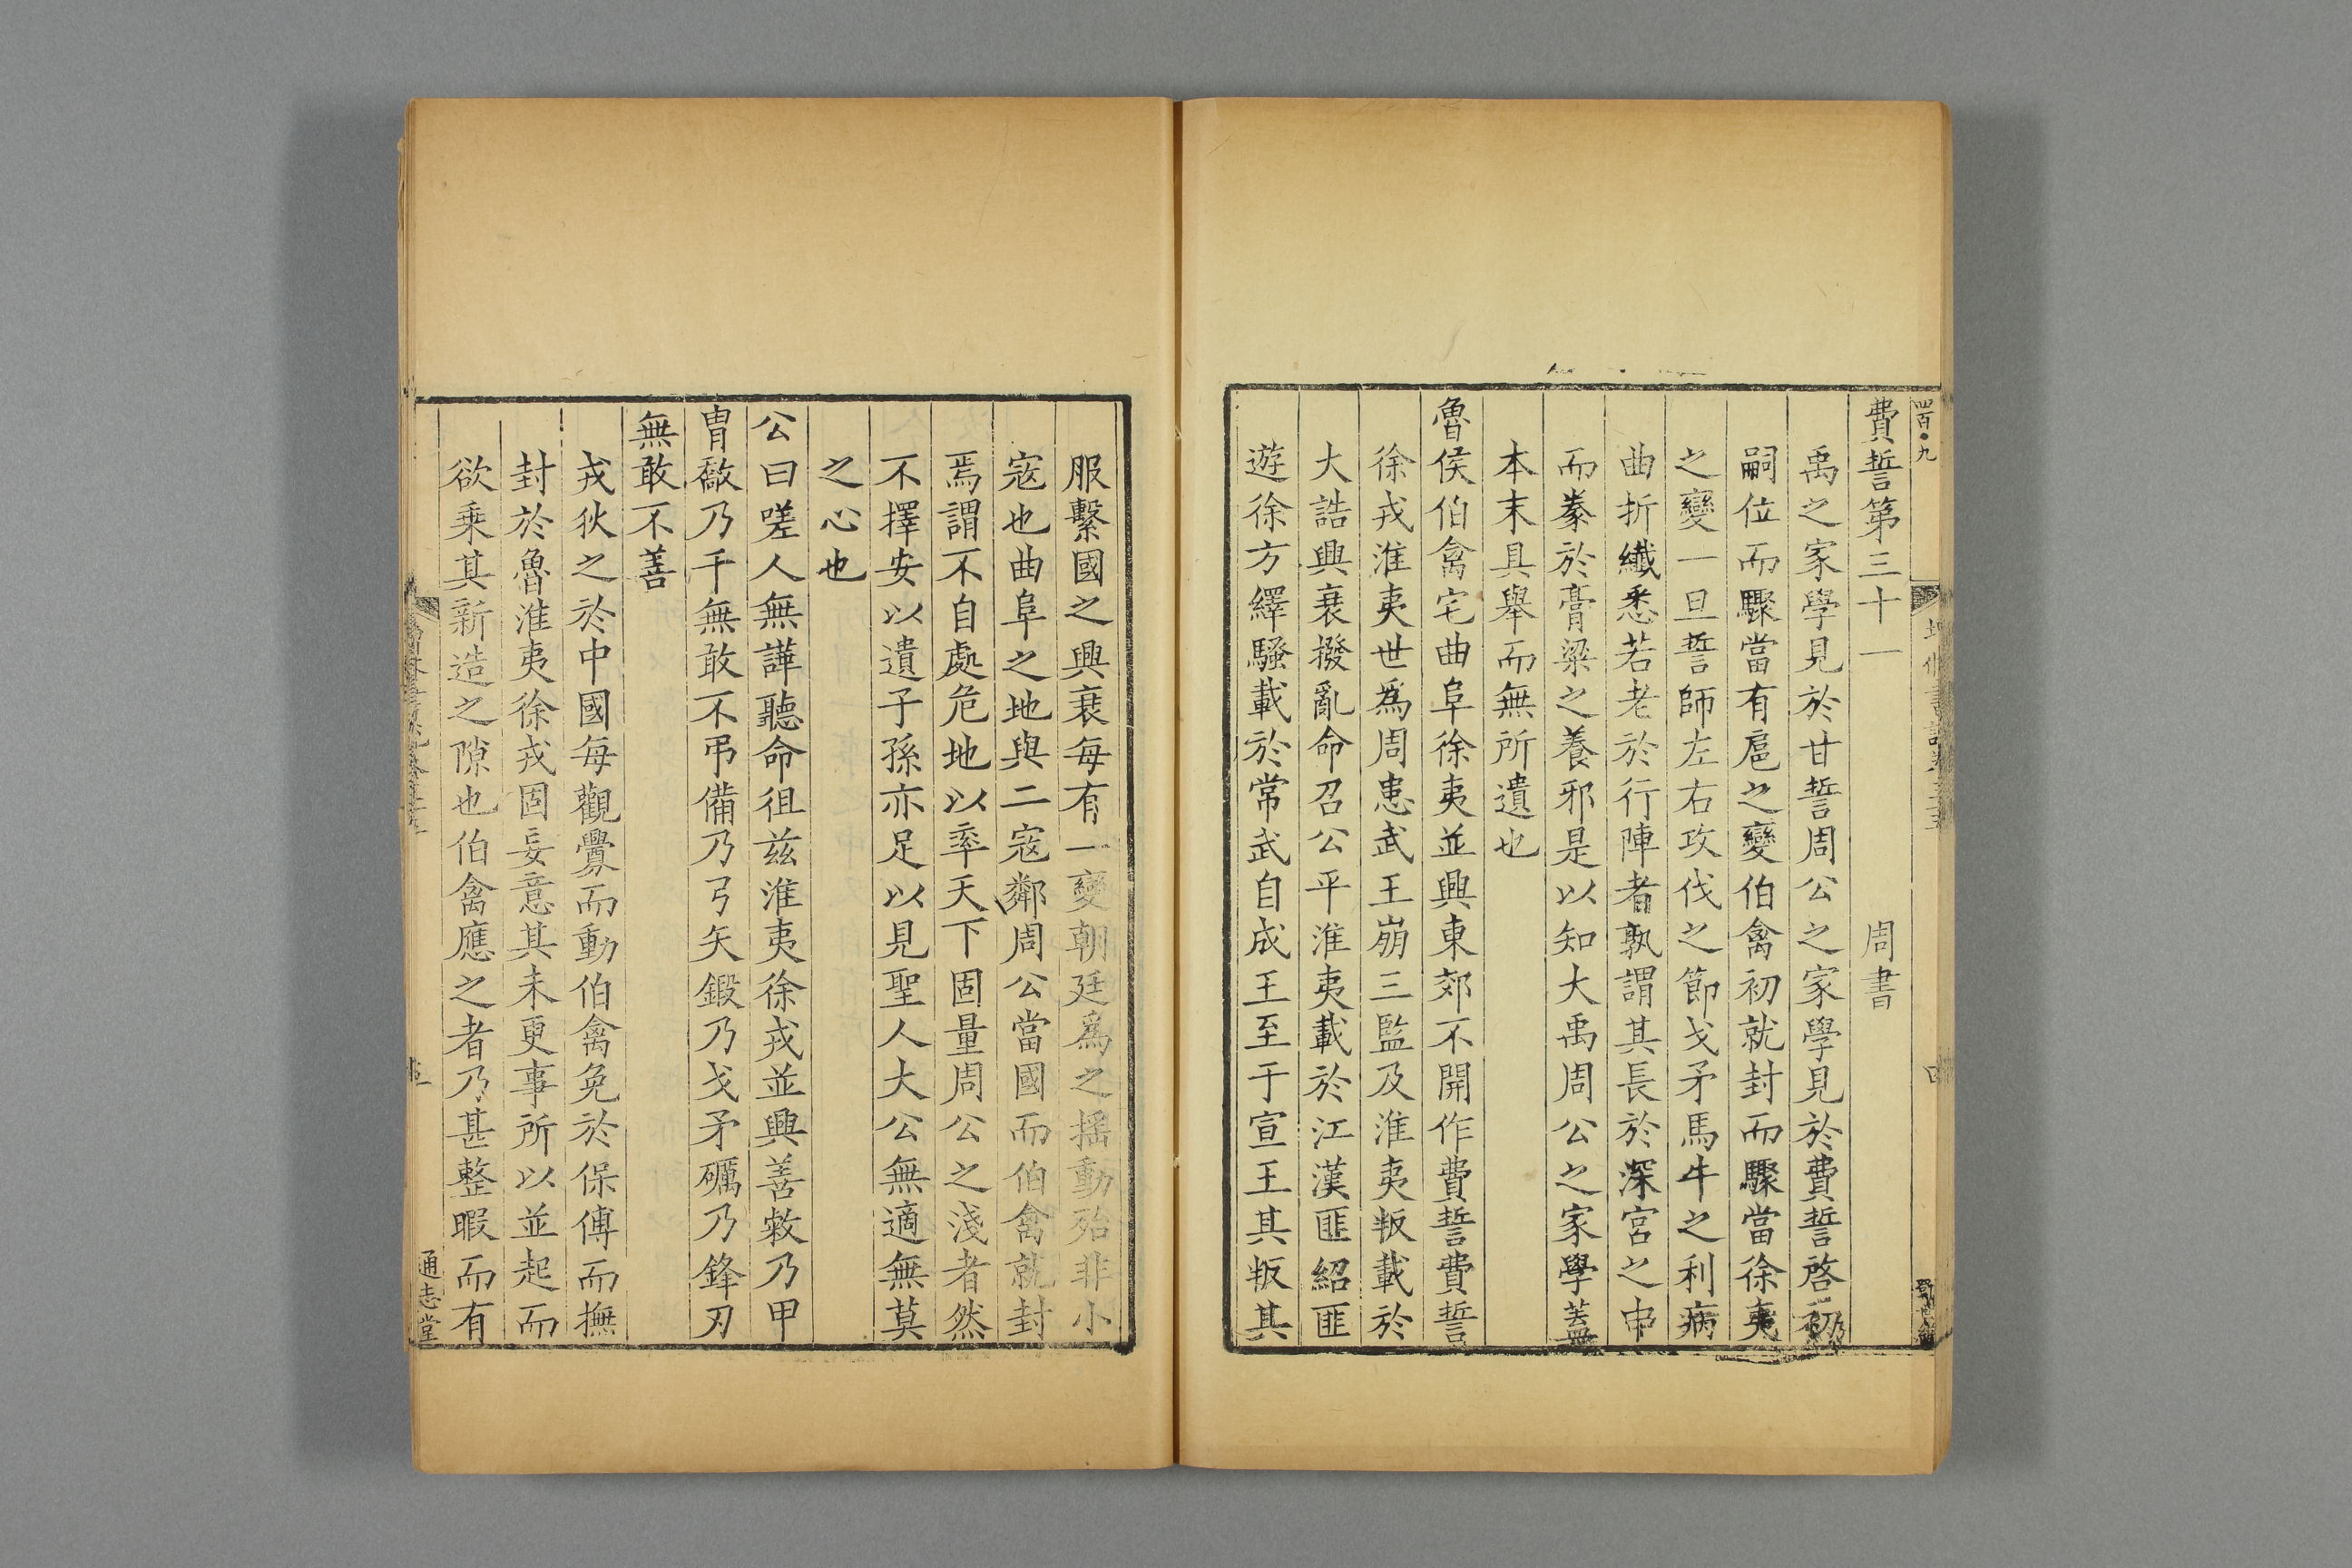 四百·九
費誓第三十一　周書
禹之家學見於甘誓周公之家學見於費誓啓初
嗣位而驟當有扈之變伯禽初就封而驟當徐夷
之變一旦誓師左右攻伐之節戈矛馬牛之利病
曲折纖悉若老於行陣者孰謂其長於深宮之中
而豢於膏粱之養邪是以知大禹周公之家學蓋
本末具舉而無所遺也
魯侯伯禽宅曲阜徐夷並興東郊不開作費誓費誓
徐戎淮夷世爲周患武王崩三監及淮夷叛載於
大誥興衰撥亂命召公平淮夷載於江漢匪紹匪
遊徐方繹騷載於常武自成王至于宣王其叛其
服繫國之興衰每有一變朝廷爲之搖動殆非小
寇也曲阜之地與二寇鄰周公當國而伯禽就封
焉謂不自處危地以率天下固量周公之淺者然
不擇安以遺子孫亦足以見聖人大公無適無莫
之心也
公曰嗟人無譁聽命徂茲淮夷徐戎並興善敹乃甲
冑敿乃干無敢不弔備乃弓矢鍛乃戈矛礪乃鋒刃
無敢不善
戎狄之於中國每觀釁而動伯禽免於保傅而撫
封於魯淮夷徐戎固妄意其未更事所以並起而
欲乘其新造之隙也伯禽應之者乃甚整暇而有
通志堂